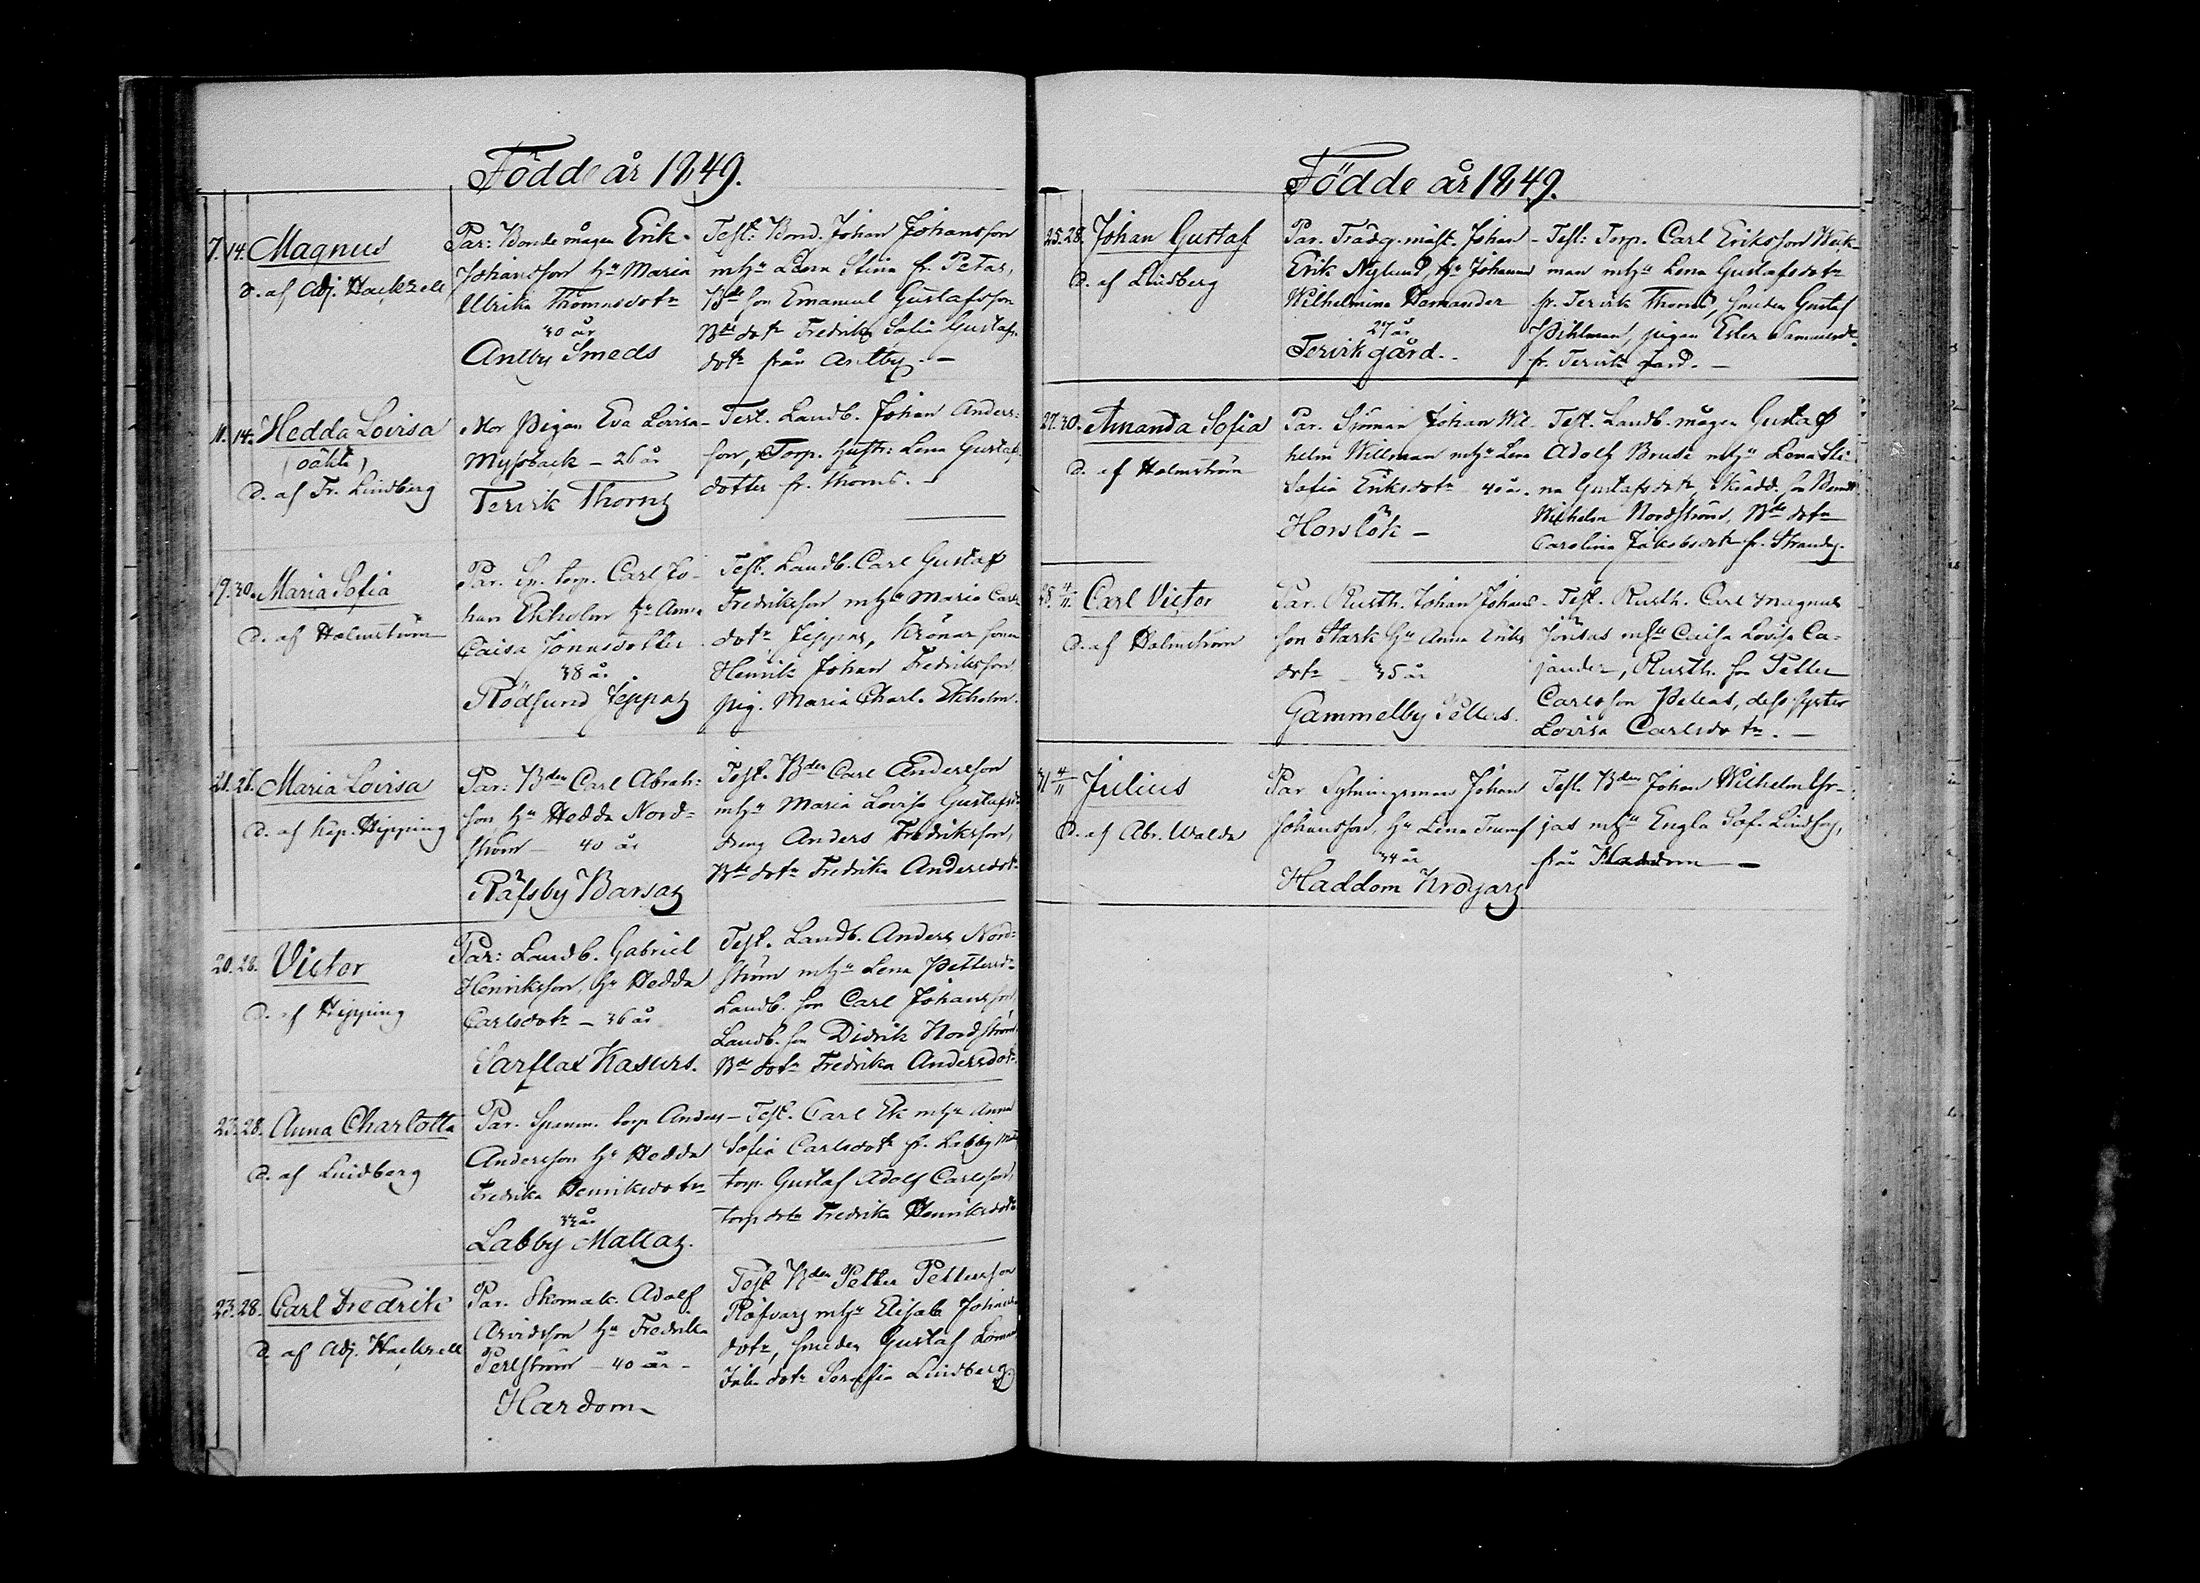 Födde år 1849.
7. 14. Magnus
d. af Adj. Hackzell
Par: Bonde mågen Erik
Johansson hu Maria
Ulrika Thomasdotr
30 år
Antby Smeds
Test: Bond. Johan Johansson
mhu Lena Stina fr. Petas,
Bde son Emanuel Gustafsson
Bde dotr Fredrika Sofia Gustafs-
dotr från Antby. —
11. 14. Hedda Lovisa
(oäkta)
d. af Fr. Lindberg
Mor Pigan Eva Lovisa
Myssback — 26 år
Tervik Thorns
Test. Landb. Johan Anders-
son, Torp. hustr: Lena Gustafs-
dotter fr. Thorns. —
19. 30. Maria Sofia
d. af Holmström
Par. Sp. torp. Carl Jo-
han Ekholm hu Anna
Caisa Jonasdotter
38 år
Rödsund Jeppas
Test. Landb. Carl Gustaf
Fredriksson mhu Maria Carls-
dotr Jeppas, Krönar sonen
Henrik Johan Fredriksson
pig. Maria Charl. Ekholm.
21. 26. Maria Lovisa
d. af Kap. Hipping
Par: Bden Carl Abrah:
son hu Hedda Nord-
ström — 40 år
Räfsby Barsas
Test. Bden Carl Andersson
mhu Maria Lovisa Gustafsd.
dreng Anders Fredriksson,
Bde dotr Fredrika Andersdotr
20. 28. Victor
d. af Hipping
Par: Landb. Gabriel
Henriksson, hu Hedda
Carlsdotr — 36 år
Sarflax Kasurs.
Test. Landb. Anders Nord-
ström mhu Lena Pettersd.
Landb. son Carl Johansson,
Landb. son Didrik Nordström
Bde dotr Fredrika Andersdotr
23. 28. Anna Charlotta
d. af Lindberg
Par. Spanm. torp Anders
Andersson hu Hedda
Fredrika Henriksdotr
33 år
Labby Mattas.
Test. Carl Ek mhu Anna
Sofia Carlsdotr fr. Labby
torp. Gustaf Adolf Carlsson,
torp dotr Fredrika Henriksdotr
23. 28. Carl Fredrik
d. af Adj. Hackzell
Par. Skomak. Adolf
Arvidsson hu Fredrika
Perlström — 40 år —
Hardom
Test Bden Petter Pettersson
Räfvars mhu Elisab. Johans-
dotr, smeden Gustaf
dotr Serafia Lindberg
Födde år 1849.
25. 28. Johan Gustaf
d. af Lindberg
Par. Trädg. mäst. Johan
Erik Nylund, hu Johanna
Wilhelmina
27 år
Tervik gård.
Test: Torp. Carl Eriksson Wek-
man mhu Lena Gustafsdotr
fr. Tervik Thorns, smeden Gustaf
Pihlman, pigan Ester
fr. Tervik gård. —
27. 30. Amanda Sofia
d. af Holmström
Par. Sjöman Johan Wil-
helm Willman mhu Lena
Sofia Eriksdotr 40 år.
Horslök —
Test. Landb. mågen Gustaf
Adolf Bruse mhu Lena Sti-
na Gustafsdotr, Skrädd. son Berndt
Wilhelm Nordström, Bde dotr
Carolina Jakobsdotr fr. Strandby.
28. 4/11 Carl Victor
d. af Holmström
Par. Rusth. Johan Johans-
son Stark hu Anna Eriks
dotr — 35 år
Gammelby Pellas.
Test. Rusth. Carl Magnus
Jönsas mhu Caisa Lovisa Ca-
jander, Rusth. son Petter
Carlsson Pellas, dess syster
Lovisa Carlsdotr. —
31 4/11 Julius
d. af Abr. Walda
Par Sytningsman Johan
Johansson, hu Lena Trumf
34 år
Haddom Krogars
Test. Bden Johan Wilhelm Esr-
jas mhu Engla Sof. Lindfors,
från Haddom —